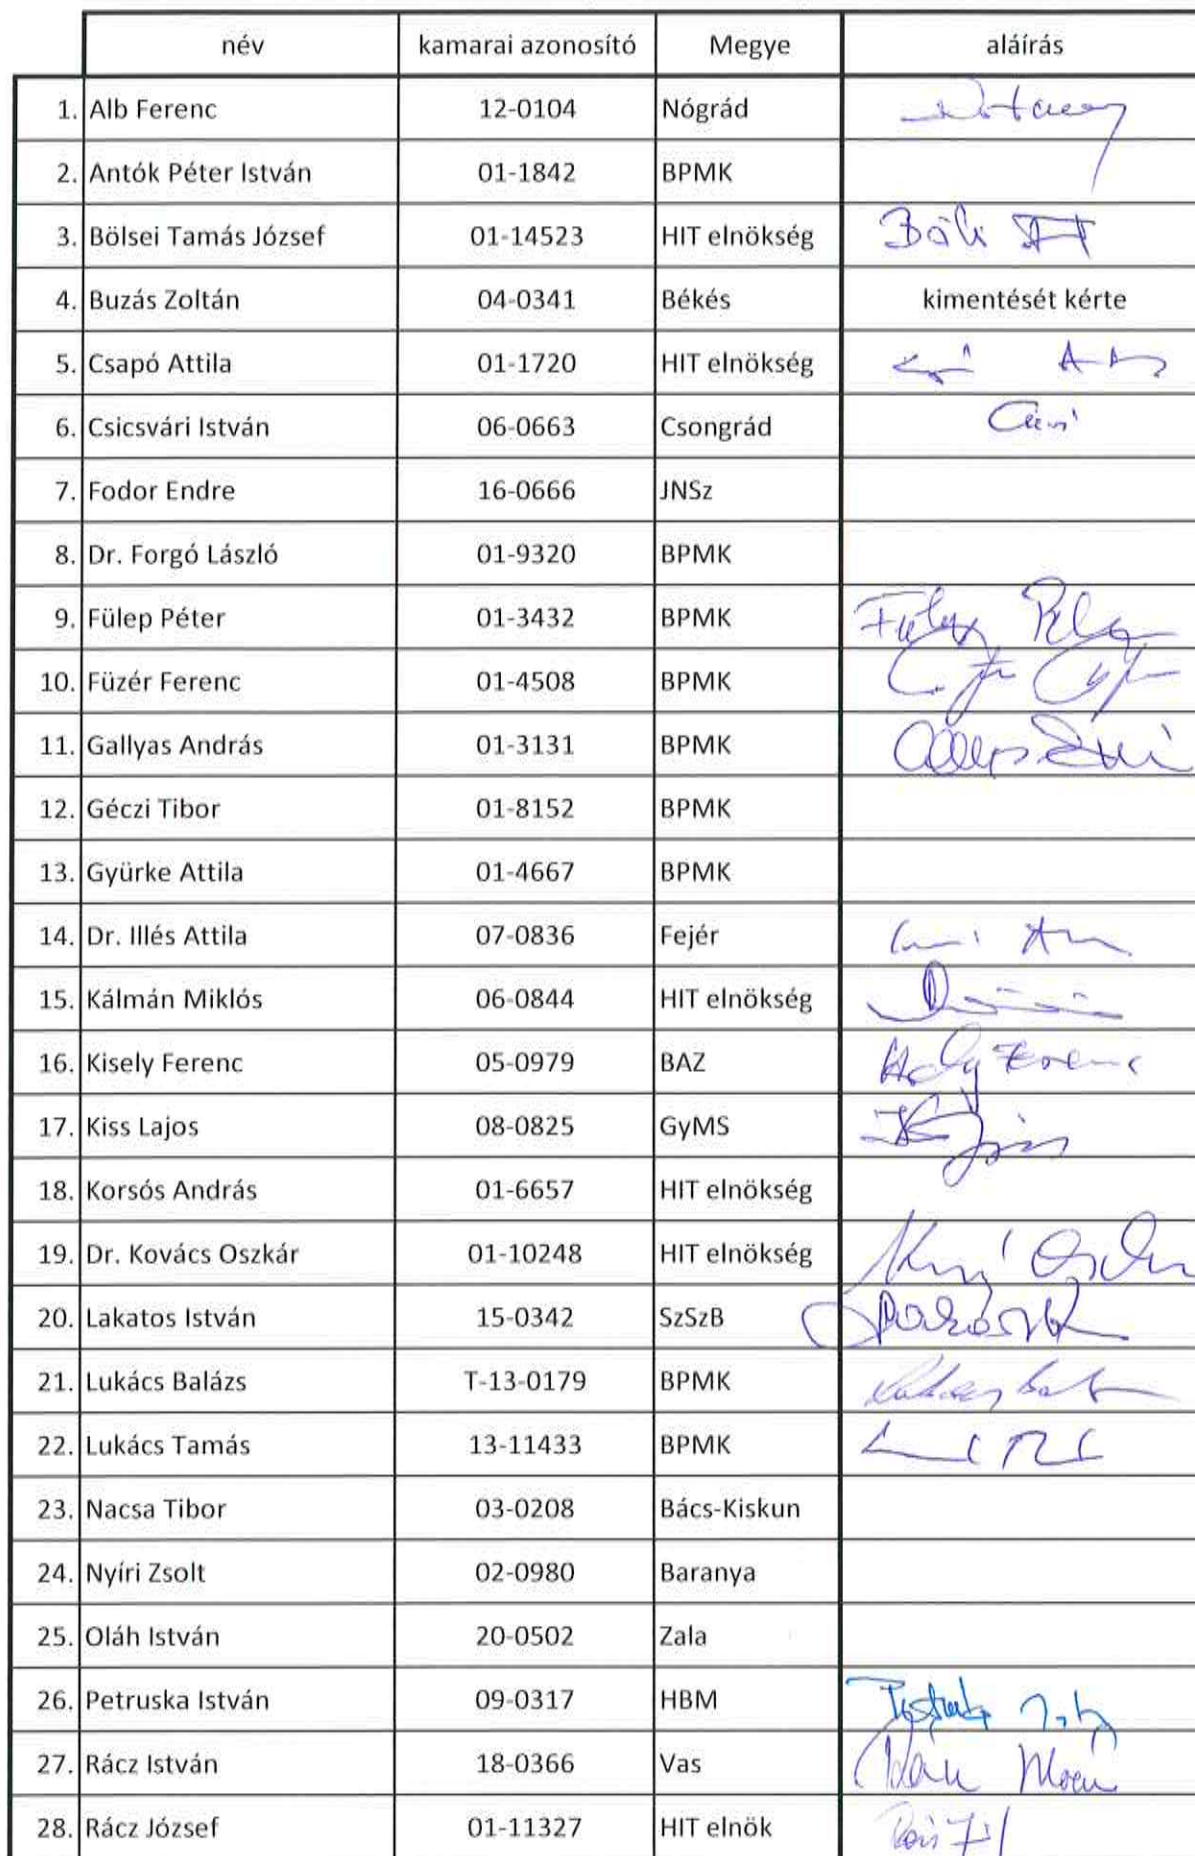 név kamarai azonosító Megye aláírás
1. Alb Ferenc 12-0104 Nógrád
2. Antók Péter István 01-1842 BPMK
3. Bölsei Tamás József 01-14523 HIT elnökség
4. Buzás Zoltán 04-0341 Békés kimentését kérte
5. Csapó Attila 01-1720 HIT elnökség
6. Csicsvári István 06-0663 Csongrád
7. Fodor Endre 16-0666 JNSz
8. Dr. Forgó László 01-9320 BPMK
9. Fülep Péter 01-3432 BPMK
10. Füzér Ferenc 01-4508 BPMK
11. Gallyas András 01-3131 BPMK
12. Géczi Tibor 01-8152 BPMK
13. Gyürke Attila 01-4667 BPMK
14. Dr. Illés Attila 07-0836 Fejér
15. Kálmán Miklós 06-0844 HIT elnökség
16. Kisely Ferenc 05-0979 BAZ
17. Kiss Lajos 08-0825 GyMS
18. Korsós András 01-6657 HIT elnökség
19. Dr. Kovács Oszkár 01-10248 HIT elnökség
20. Lakatos István 15-0342 SzSzB
21. Lukács Balázs T-13-0179 BPMK
22. Lukács Tamás 13-11433 BPMK
23. Nacsa Tibor 03-0208 Bács-Kiskun
24. Nyíri Zsolt 02-0980 Baranya
25. Oláh István 20-0502 Zala
26. Petruska István 09-0317 HBM
27. Rácz István 18-0366 Vas
28. Rácz József 01-11327 HIT elnök